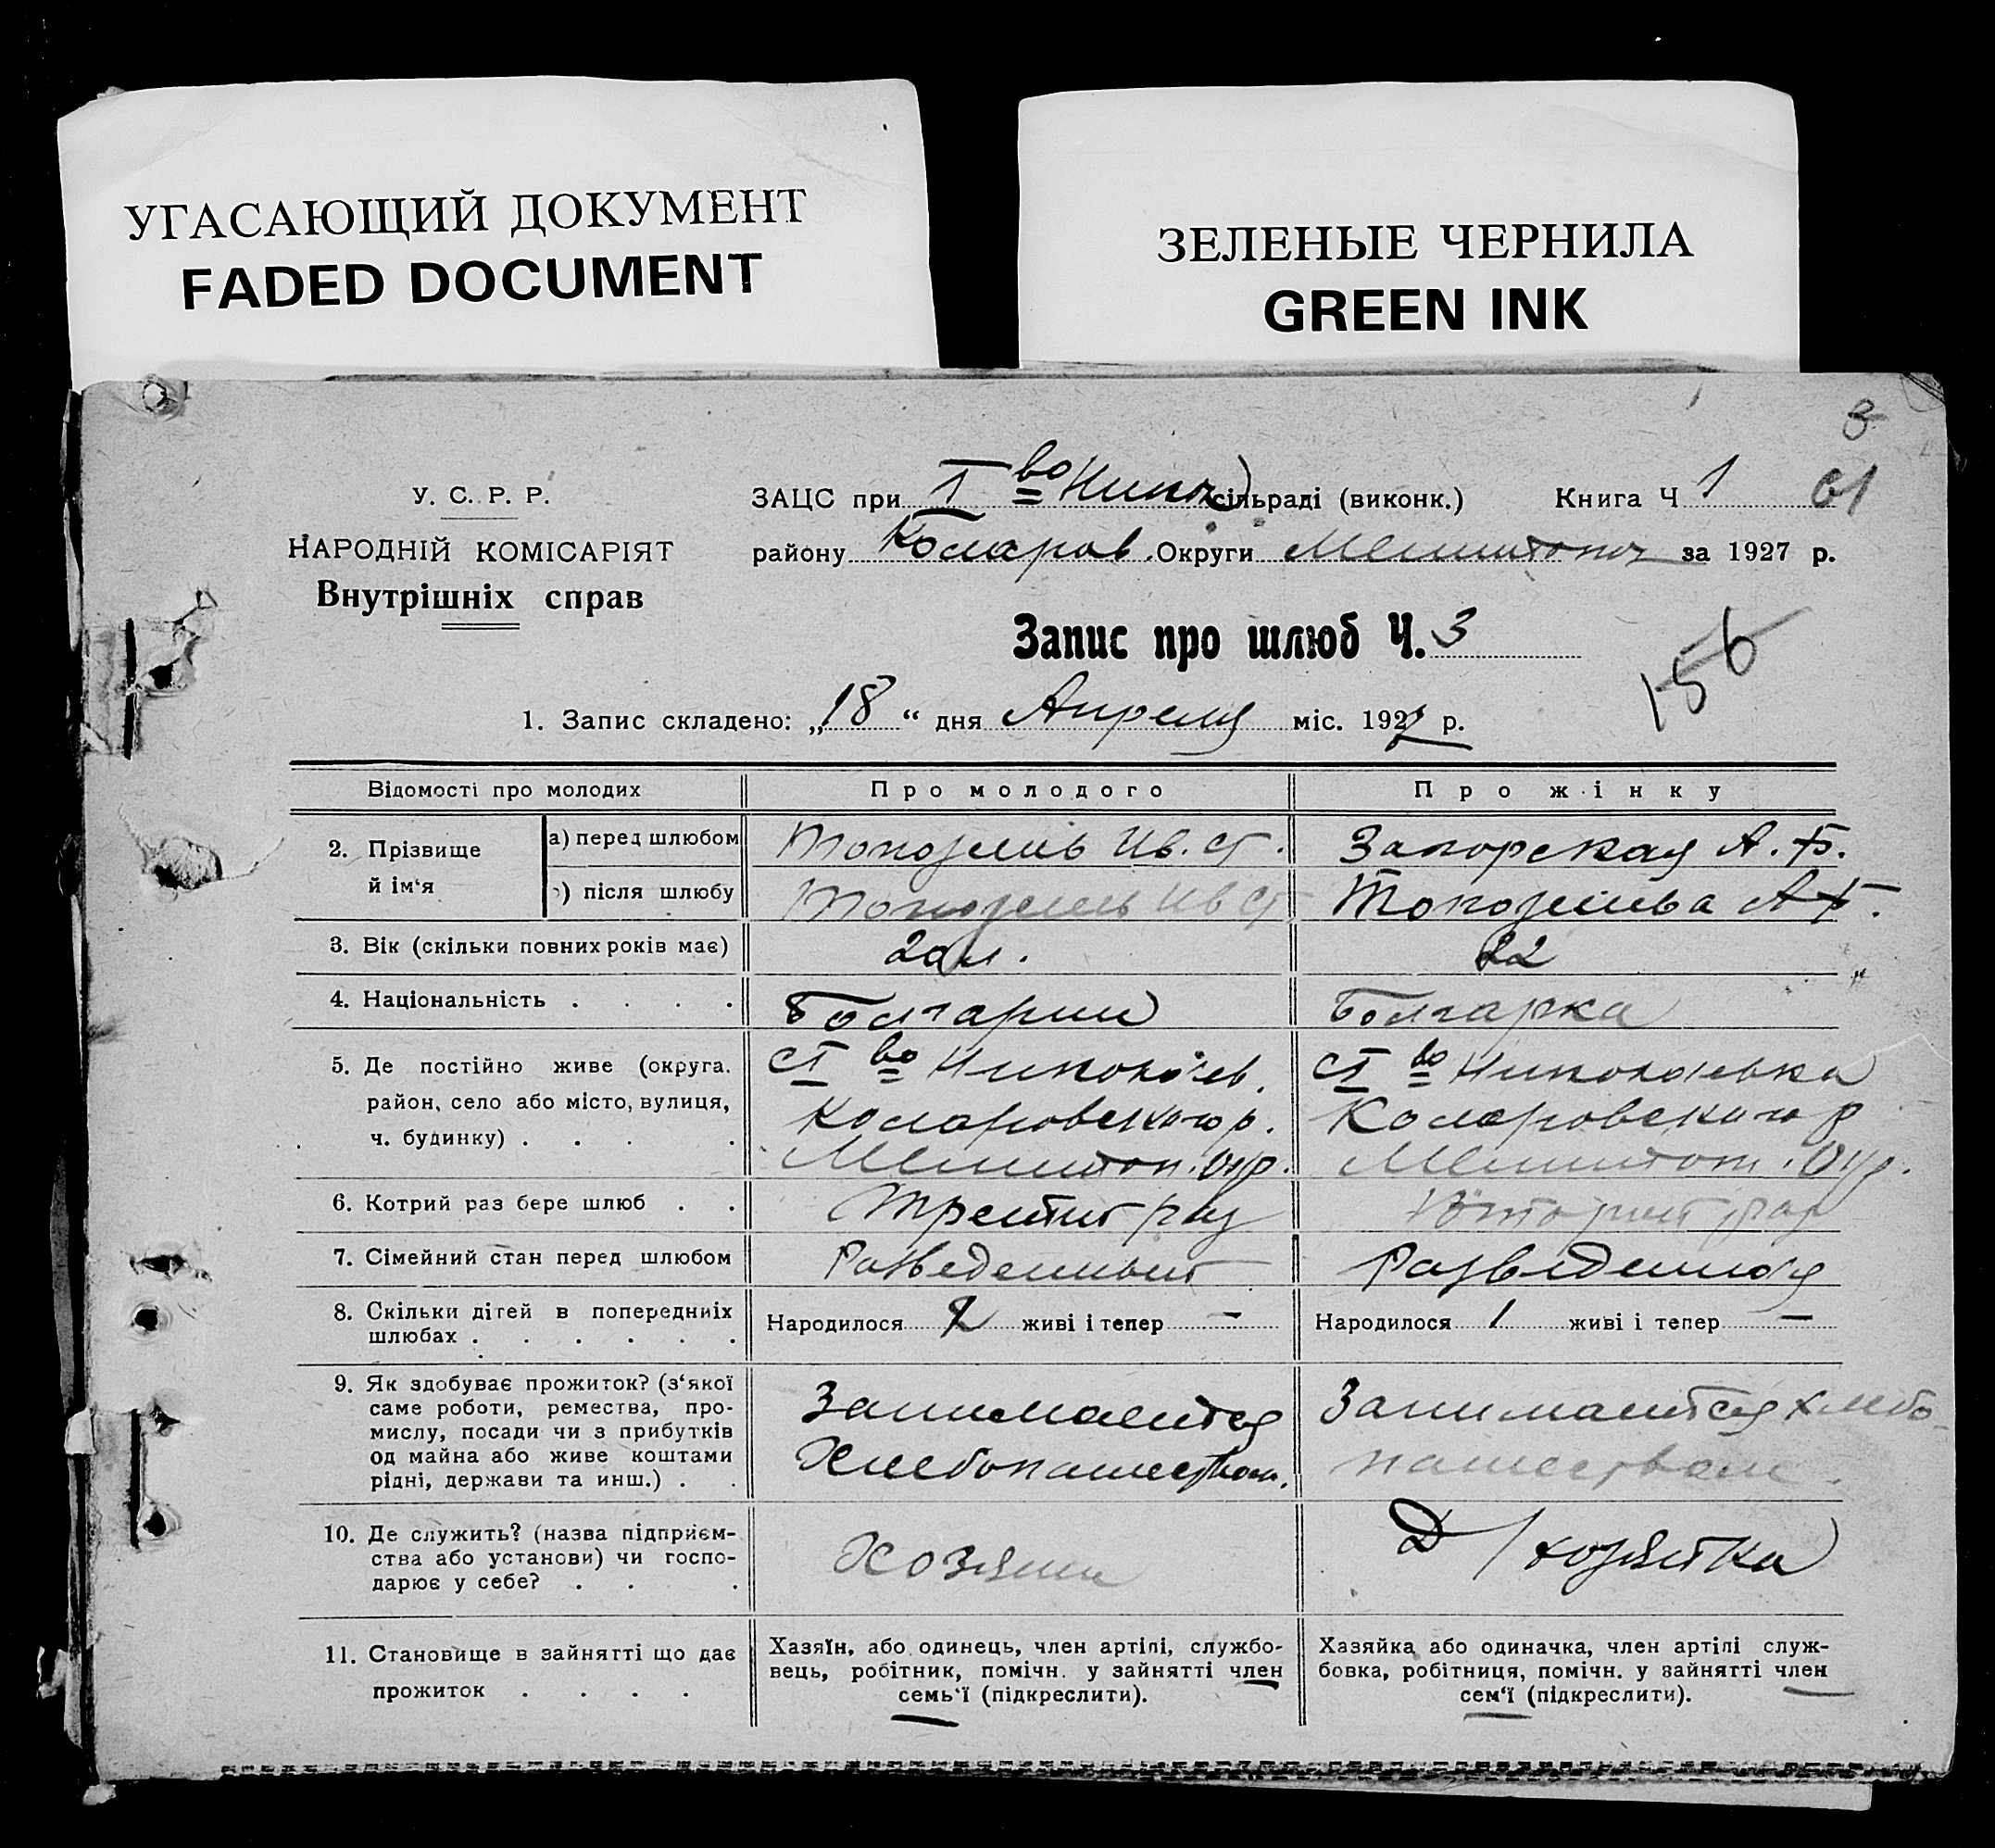 УГАСАЮЩИЙ ДОКУМЕНТ
FADED DOCUMENT
ЗЕЛЕНЫЕ ЧЕРНИЛА
GREEN INK
3
У. С. Р. Р.
НАРОДНІЙ КОМІСАРІЯТ
Внутрішніх справ
ЗАЦС при I во Никол сільраді (виконк.) Книга Ч 1
61
району Коларов. Округи Мелитопол за 1927 р.
Запис про шлюб Ч. 3
156
1. Запис складено: „18“ дня Апреля міс. 1927 р.
Відомості про молодих Про молодого Про жінку
2. Прізвище й ім‘я
а) перед шлюбом Ив. Ст. Запорская А. Ф.
) після шлюбу Ив Ст А Ф.
3. Вік (скільки повних років має) 20 л. 22
4. Національність . . . . Болгарин Болгарка
5. Де постійно живе (округа. С I во Николаев. С I во Николаевка
район, село або місто, вулиця, Коларовского р. Коларовского р
ч. будинку) . . . . Мелитоп. Окр. Мелитоп. Окр.
6. Котрий раз бере шлюб . . Третий раз Второй раз
7. Сімейний стан перед шлюбом Разведенный Разведенная
8. Скільки дітей в попередниіх Народилося 2 живі і тепер — Народилося 1 живі і тепер —
шлюбах . . . . . .
9. Як здобуває прожиток? (з‘якої
саме роботи, ремества, про-
мислу, посади чи з прибутків
од майна або живе коштами
рідні, держави та инш.) . .
Занимается
Хлебопашеством.
Занимается хлебо-
пашеством.
10. Де служить? (назва підприєм-
ства або установи) чи госпо-
дарює у себе? . . .
Хозяин
Д/хозяйка
11. Становище в зайнятті що дає
прожиток . . . .
Хазяїн, або одинець, член артілі, службо-
вець, робітник, помічн. у зайнятті член
семь‘ї (підкреслити).
Хазяйка або одиначка, член артілі служ-
бовка, робітниця, помічн. у зайнятті член
сем‘ї (підкреслити).